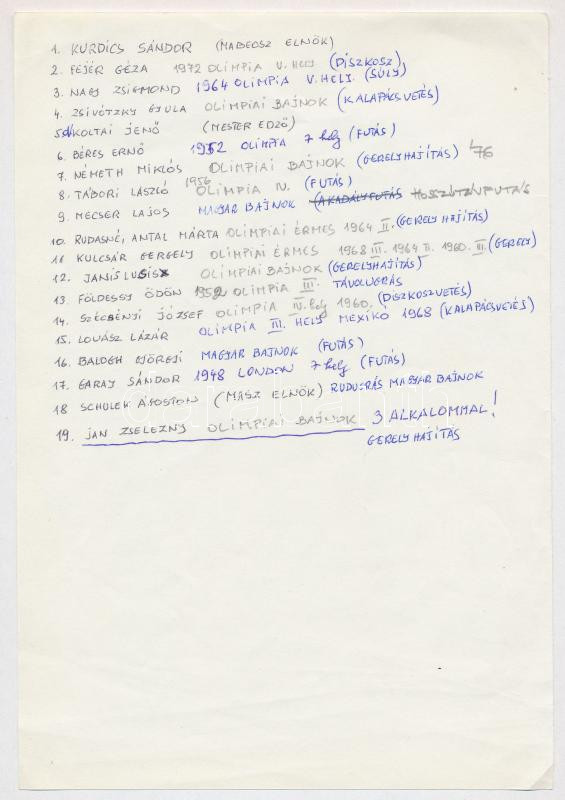 1. KURDICS SÁNDOR (MABEOSZ ELNÖK)
2. FEJÉR GÉZA 1972 OLIMPIA V. HELY (DÍSZKOSZ)
3. NAGY ZSIGMOND 1964 OLIMPIA V. HELY. (SÚLY)
4. ZSIVÓTZKY GYULA OLIMPIAI BAJNOK (KALAPÁCSVETÉS)
5. KOLTAI JENŐ (MESTER EDZŐ)
6. BÉRES ERNŐ 1952 OLIMPIA 7 hely (FUTÁS)
7. NÉMETH MIKLÓS OLIMPIAI BAJNOK (GERELYHAJÍTÁS) '76
8. TÁBORI LÁSZLÓ 1956 OLIMPIA IV. (FUTÁS)
9. MECSER LAJOS MAGYAR BAJNOK (AKADÁLYFUTÁS HOSSZÚTÁVFUTÁS
10. RUDASNÉ, ANTAL MÁRTA OLIMPIAI ÉRMES 1964 II. (GERELY HAJÍTÁS)
11 KULCSÁR GERGELY OLIMPIAI ÉRMES 1968 III. 1964 II. 1960. III. (GERELY)
12. JANIS LUSIS OLIMPIAI BAJNOK (GERELYHAJÍTÁS)
13. FÖLDESSY ÖDÖN 1952 OLIMPIA III. TÁVOLUGRÁS
14. SZÉCSÉNYI JÓZSEF OLIMPIA IV. hely 1960. (DISZKOSZVETÉS)
15. LOVÁSZ LÁZÁR OLIMPIA III. HELY MEXIKÓ 1968 (KALAPÁCSVETÉS)
16. BALOGH GYÖRGYI MAGYAR BAJNOK (FUTÁS)
17. GARAY SÁNDOR 1948 LONDON 7 hely (FUTÁS)
18 SCHULEK ÁGOSTON (MASZ ELNÖK) RUDUGRÁS MAGYAR BAJNOK
19. JAN ZSELEZNY OLIMPIAI BAJNOK 3 ALKALOMMAL!
GERELYHAJÍTÁS